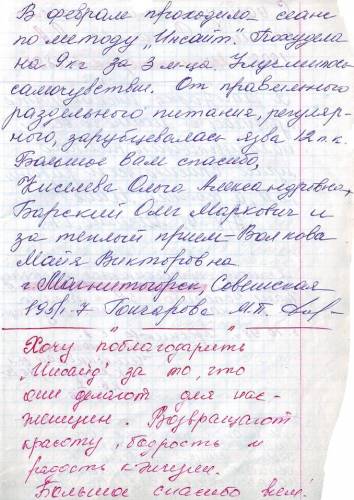 В феврале проходила сеанс
по методу „Инсайт". Похудела
на 9 кг за 3 м-ца. Улучшилось
самочувствие. От правильного
раздельного питания, регуляр-
ного, зарубцевалась язва 12 п.к.
Большое Вам спасибо,
Киселева Ольга Александровна,
Барский Олег Маркович и
за теплый прием - Волкова
Майя Викторовна
г. Магнитогорск, Советская
Гончарова М.П.
Хочу поблагодарить
„Инсайд" за то, что
они делают для нас -
женщин. Возвращают
красоту, бодрость и
радость к жизни.
Большое спасибо всем!